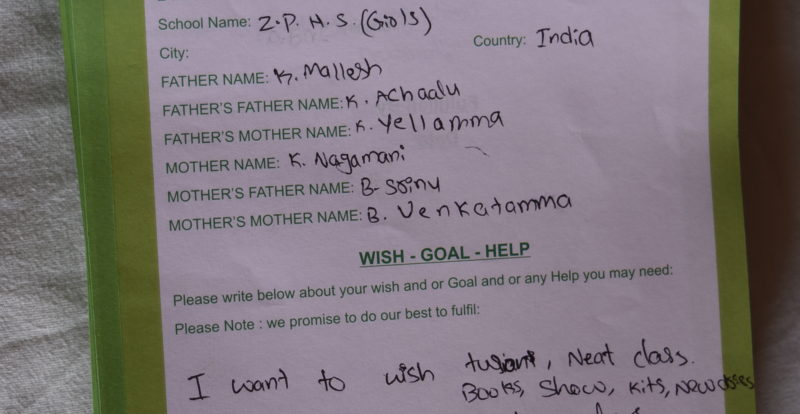 School Name: Z.P. H. S. (Girls)
City:
Country: India
FATHER NAME: K. Mallesh
FATHER'S FATHER NAME: K. Achaalu
FATHER'S MOTHER NAME: K. Yellamma
MOTHER NAME: K. Nagamani
MOTHER'S FATHER NAME: B- Srinu
MOTHER'S MOTHER NAME: B. Venkatamma
WISH - GOAL - HELP
Please write below about your wish and or Goal and or any Help you may need:
Please Note : we promise to do our best to fulfil:
I want to wish tusioni, Neat class.
Books, Show, Kits,